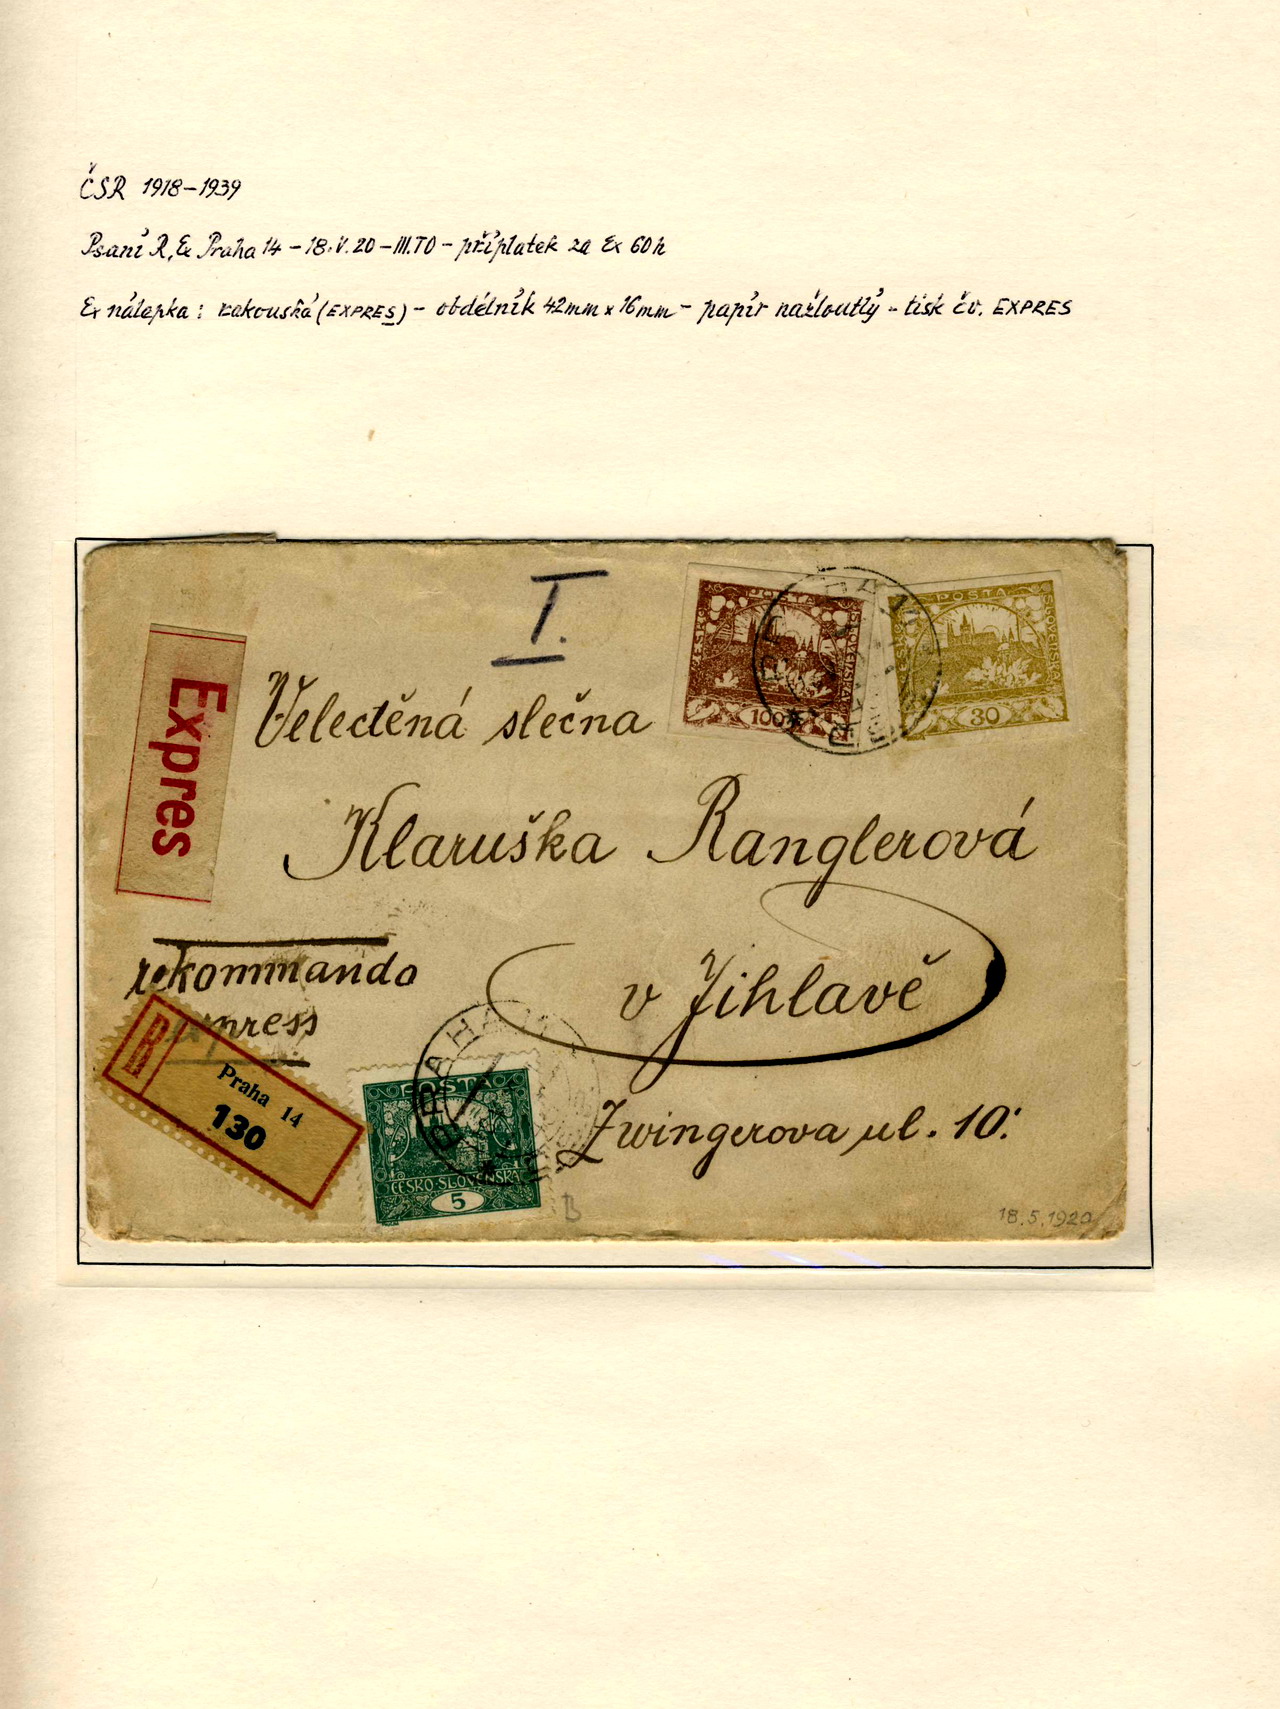 ČSR 1918-1939
Psaní R, Ex Praha 14 - 18.V.20 - III.TO - příplatek za Ex 60h
Ex nálepka: rakouská (EXPRES) - obdélník 42mm x 16mm - papír nažloutlý - tisk čv. EXPRES
I.
POSTA
ČESKO
SLOVENSKÁ
100
POSTA
ČESKO
SLOVENSKÁ
30
Expres
Velectěná slečna
Klaruška Ranglerová
v Jihlavě
Zwingerova ul. 10.
rekommando
express
R
Praha 14
130
PRAHA
POSTA
ČESKO-SLOVENSKÁ
5
B
18.5.1920